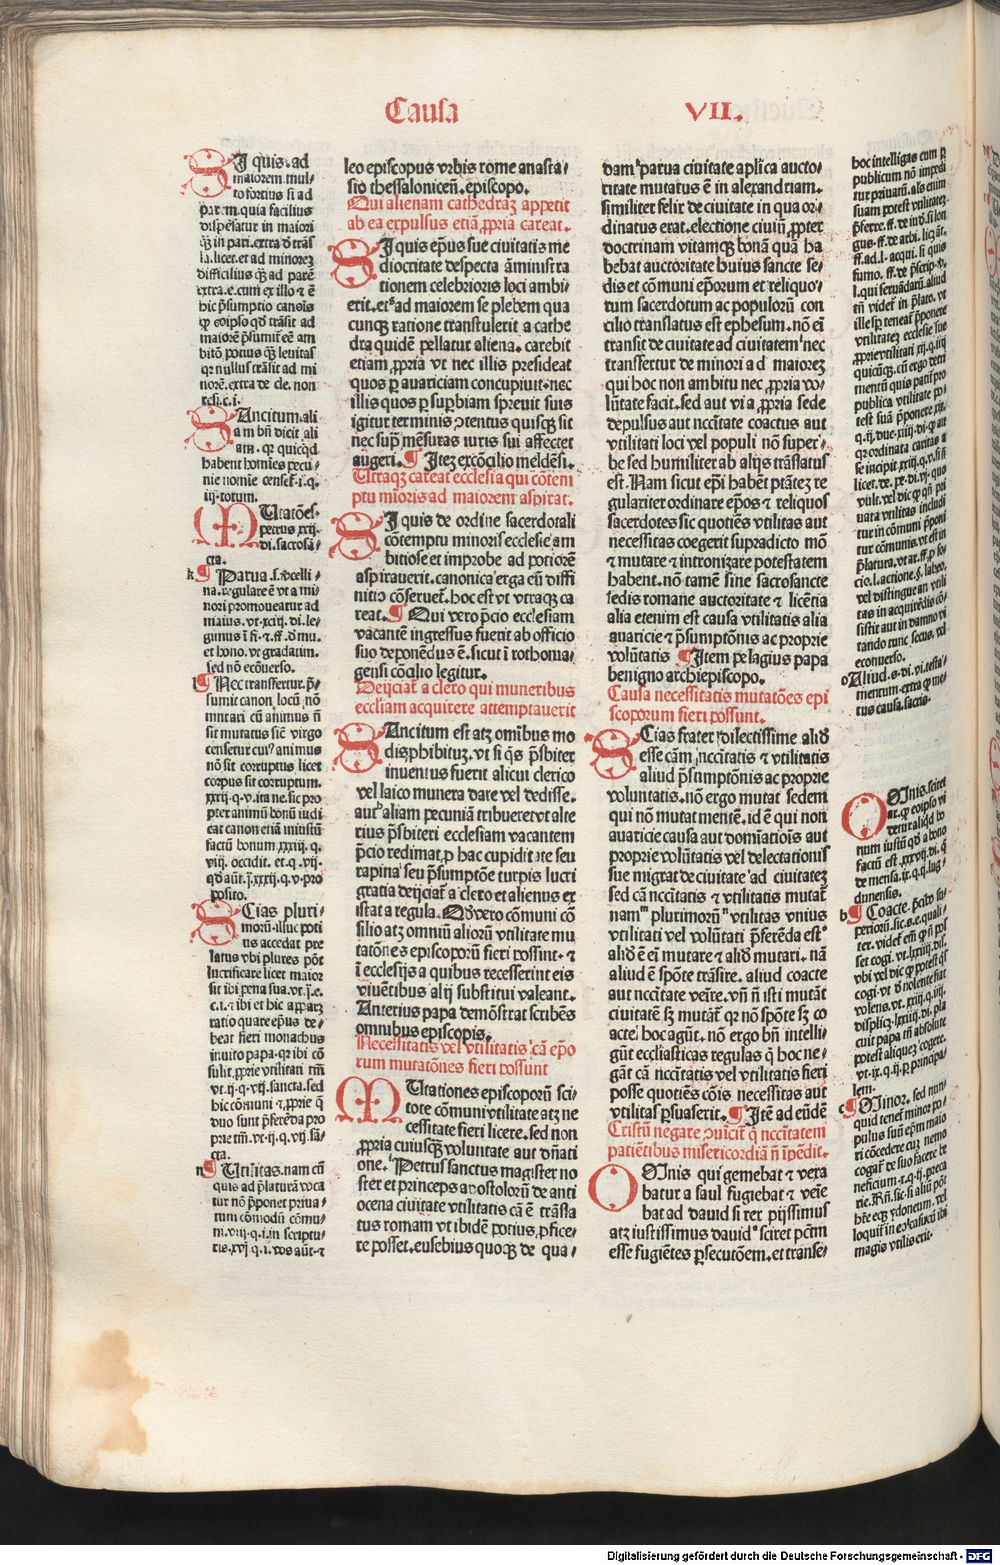 Causa VII.
SI quis. ad
maiorem. mul-
to fortius si ad
parem. quia facilius
dispēsatur in maiori
q̄ʒ in pari. extra d̄ trās
la. licet. et ad minoreʒ
difficilius q̄ʒ ad parē
extra. e. cum ex illo ⁊ ē
hic p̄sumptio canōis
ꝙ eoipso qd̄ trāsit ad
maiorē p̄sumit̄ eē am
bitō. potius q̄ʒ leuitas
qꝛ nullus trāsit ad mi
norē. extra de cle. non
resi. c. i.
SAncitum. ali
a m bn̄ dicit ali
am. qꝛ quicqd̄
habent homīes pecu-
nie nomīe censet̄. i. q.
iij. totum.
MUtatōes.
petrus xxij.
di. sacrosā-
cta.
k ¶ Parua. s. ꝓcelli-
na. regulare ē vt a mi-
nori promoueatur ad
maius. vt. xciij. di. le-
gimus ī fi. ⁊. ff. d̄ mu.
et hono. vt gradatim.
sed nō ecōuerso.
l ¶ Nec transfertur. p̄-
sumit canon locū nō
mutari cū animus n̄
sit mutatus siē virgo
censetur cui⁹ animus
nō sit corruptus licet
corpus sit corruptum.
xxxij. q. v. ita ne. sic pro
pter animū bonū iudi
cat canon etiā iniustū
factū bonum. xxiij. q.
viij. occidit. et. q. vij.
qd̄ aūt. ī. xxxij. q. v. pro
posito.
SCias pluri-
morū. illuc poti
us accedat pre
latus vbi plures pōt
lucrificare licet maior
sit ibi pena sua. vt. ī. e.
c. i. ⁊ ibi et hic apparʒ
ratio quare ep̄us de-
beat fieri monachus
inuito papa. qꝛ ibi cō
sulit. ꝓprie vtilitati tm̄
vt. ij. q. vij. sancta. sed
hic cōmuni ⁊. ꝓprie q̄
duo sunt p̄ferēda pro
prie tm̄. vt. ij. q. vij. sā-
cta.
n ¶ Utilitas. nam cū
quis ad p̄laturā voca
tur nō p̄ponet priua-
tum cōmodū cōmu-
ni. viij. q. i. in scriptu-
ris. xvj. q. i. vos aūt. ⁊
leo episcopus vrbis rome anasta-
sio thessalonicen̄. episcopo.
Qui alienam cathedraʒ appetit
ab ea expulsus etiā ꝓpria careat.
SI quis ep̄us sue ciuitatis me
diocritate despecta āministra
tionem celebrioris loci ambi-
erit. et⁹ ad maiorem se plebem qua
cunqʒ ratione transtulerit a cathe
dra quidē pellatur aliena. carebit
etiam ꝓpria vt nec illis presideat
quos ꝑ auariciam concupiuit. nec
illis quos ꝑ suꝑbiam spreuit suis
igitur terminis ɔtentus quisqʒ sit
nec sup̄ mēsuras iuris sui affectet
augeri. ¶ Iteʒ ex cōcilio meldēsi.
Utraqʒ careat ecclesia qui cōtem
ptu mīoris ad maiorem aspirat.
SI quis de ordine sacerdotali
cōtemptu minoris ecclesie am
bitiose et improbe ad potiorē
aspirauerit. canonica erga eū diffi
nitio cōseruet̄. hoc est vt vtraqʒ ca
reat. ¶ Qui vero p̄cio ecclesiam
vacantē ingressus fuerit ab officio
suo deponēdus ē. sicut ī rothoma-
gensi cōcilio legitur.
Deijciat̄ a clero qui muneribus
eccliam acquirere attemptauerit
SAncitum est atqʒ omībus mo
dis ꝓhibituʒ. vt si q̄s p̄sbiter
inuentus fuerit alicui clerico
vel laico munera dare vel dedisse.
aut⁹ aliam pecuniā tribueret vt alte
rius p̄sbiteri ecclesiam vacantem
p̄cio redimat. ꝓ hac cupiditate seu
rapina seu p̄sumptōe turpis lucri
gratia deijciat̄ a clero et alienus ex
istat a regula. Qd̄ vero cōmuni cō
silio atqʒ omniū aliorū vtilitate mu
tatōnes episcoporū fieri possint. ⁊
ī ecclesijs a quibus recesserint eis
viuētibus alij substitui valeant.
Anterius papa demōstrat scribēs
omnibus episcopis.
Necessitatis vel vtilitatis cā ep̄o
rum mutatōnes fieri possunt
MUtationes episcoporū sci-
tote cōmuni vtilitate atqʒ ne
cessitate fieri licere. sed non
ꝓpria cuiusqʒ voluntate aut dn̄ati
one. Petrus sanctus magister no
ster et princeps apostolorū de anti
ocena ciuitate vtilitatis cā ē trāsla
tus romam vt ibidē potius ꝓfice-
re posset. eusebius quoqʒ de qua-
dam parua ciuitate aplica aucto-
ritate mutatus ē in alexandriam.
similiter felix de ciuitate in qua or-
dinatus erat. electione ciuiū ꝓpter
doctrinam vitamqʒ bonā quā ha
bebat auctoritate huius sancte se-
dis et cōmuni ep̄orum et reliquo-
rum sacerdotum ac populorū con
cilio translatus est ephesum. nō ei
transit de ciuitate ad ciuitatem nec
transfertur de minori ad maioreʒ
qui hoc non ambitu nec ꝓpria vo-
lūtate facit. sed aut vi a ꝓpria sede
depulsus aut nccītate coactus aut
vtilitati loci vel populi nō super-
be sed humiliter ab alijs trāslatus
est. Nam sicut ep̄i habēt ptāteʒ re
gulariter ordinare ep̄os ⁊ reliquos
sacerdotes sic quotiēs vtilitas aut
necessitas coegerit supradicto mō
⁊ mutare ⁊ intronizare potestatem
habent. nō tamē sine sacrosancte
sedis romane auctoritate ⁊ licētia
alia etenim est causa vtilitatis alia
auaricie ⁊ p̄sumptōnis ac proprie
volūtatis ¶ Item pelagius papa
benigno archiepiscopo.
Causa necessitatis mutatōes epi
scoporum fieri possunt.
SCias frater dilectissime aliō
esse cām nccītatis ⁊ vtilitatis
aliud p̄sumptōnis ac proprie
voluntatis. nō ergo mutat sedem
qui nō mutat mentē. id ē qui non
auaricie causa aut domīatiōis aut
proprie volūtatis vel delectationis
sue migrat de ciuitate ad ciuitateʒ
sed cā nccītatis ⁊ vtilitatis mutat̄
nam plurimorū vtilitas vnius
vtilitati vel volūtati p̄ferēda est
aliō ē ei mutare ⁊ aliō mutari. nā
aliud ē spōte trāsire. aliud coacte
aut nccītate veīre. vn̄ n̄ isti mutāt
ciuitatē sʒ mutāt̄ qꝛ nō spōte sʒ co
acte hoc agūt. nō ergo bn̄ intelli-
gūt eccliasticas regulas q̄ hoc ne-
gāt cā nccītatis vel vtilitatis fieri
posse quotiēs cōis necessitas aut
vtilitas ꝑsuaserit. ¶ Itē ad eūdē
Cristū negare ɔuīcit̄ q̄ nccītatem
patiētibus misericordiā n̄ īpēdit.
OMnis qui gemebat ⁊ vexa
batur a saul fugiebat ⁊ veīe
bat ad dauid si rex pijssimus
atqʒ iustissimus dauid sciret pctm̄
esse fugiētes ꝑsecutōem. et transe-
hoc intelligas cum ꝑ
publicum nō impedi
tur priuatū. als enim
suam potest vtilitateʒ
p̄ferre. ff. de in d̄. si lon
gus. ff. de arbi. liqūt.
ff. ad. l. acqui. si quis
fumo. ff. de p̄scrip. v.
l. qui seruādarū. aliud
tn̄ videt̄ in p̄lato. vt
ille sꝑ teneat̄ p̄ponere
vtilitateʒ ecclesie sue
ꝓprie vtilitati. xij. q. iij
quicūqʒ. cū ergo detri
mentū quis patit̄ pro
publica vtilitate po-
test suā p̄ponere. xix.
q. ij. due. xiij. di. ꝙ aūt
qꝛ ordinata caritas a
se incipit. xxiij. q. v. si n̄
licet. de. pe. di. vj. quo
vult. vel dic ꝙ qn̄ pri
uata vtilitas includi
tur in cōmuni p̄poni
tur cōmunis. vt est in
p̄latura. vt ar. ff. ꝓ so-
cio. l. actione. §. labeo.
vel distingue an vtili
tas in acquirēdis cō-
sistit aut in damno vi
tando tunc secus. vel
econuerso.
o Aliud. s. di. vi. testa-
mentum. extra ꝙ me-
tus causa. sacris.
OMnis. scitet
ar. ꝙ eoipso vi
detur aliqd̄ bo
num iustū qd̄ a bono
factū est. xxvij. di. q̄
de mensa. ix. q. ij. lug-
dunensis.
b ¶ Coacte. p̄cīto su-
periorū. sic. s. e. quali-
ter. videt̄ em̄ ꝙ n̄ pos
set cogi. vt. lxxiiij. dis.
vbi vel dic ꝙ potest q̄s
cogi. vt d̄ nolente fiat
volens. vt. xxiij. q. iiij.
displicʒ. lxxiiij. di. pla
cuit papa tn̄ absolute
potest aliqueʒ cogere.
vt. ix. q. ij. ꝑ principa-
lem.
c ¶ Minor. sed nun-
quid tenet̄ minor po-
pulus suū ep̄m maio
ri cōcedere cuʒ nemo
cogat̄ de suo facere be
neficium. x. q. ij. preca
rie. Rn̄. sic. si aliū pōt
hr̄e eque ydoneum. vel
loquit̄ in eo casu cū ibi
magis vtilis erit.
Digitalisierung gefördert durch die Deutsche Forschungsgemeinschaft - DFG